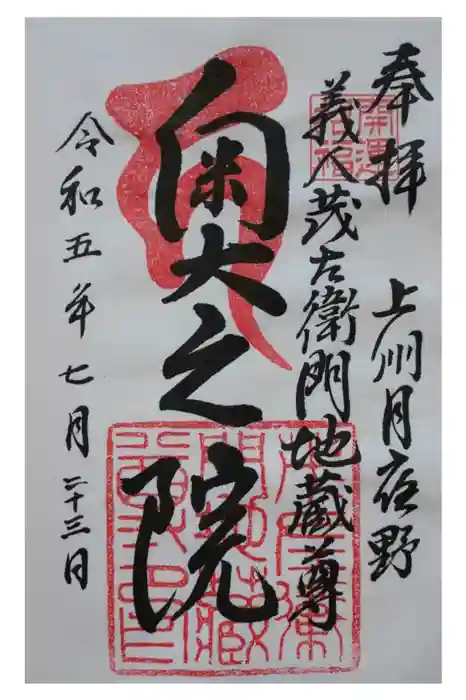 奉拝
上州月夜野
開運
招福
義人茂左衛門地蔵尊
奥之院
令和五年七月二十三日